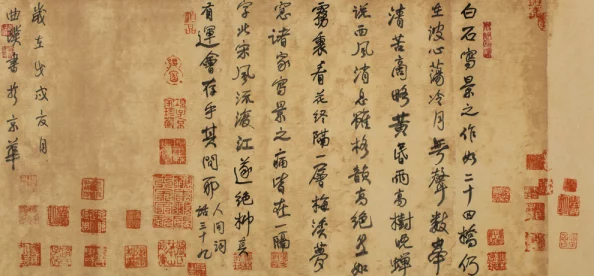 白石寫景之作如二十四橋仍
在波心蕩冷月無聲數峯
清苦商略黃昏雨高樹晚蟬
說西風消息雖格韻高絕然如
霧裏看花終隔一層梅溪夢
窓諸家寫景之病皆在一隔
字北宋風流渡江遂絕抑真
有運會存乎其間耶
人間詞
話三十九
歲在戊戌夏月
書於京華